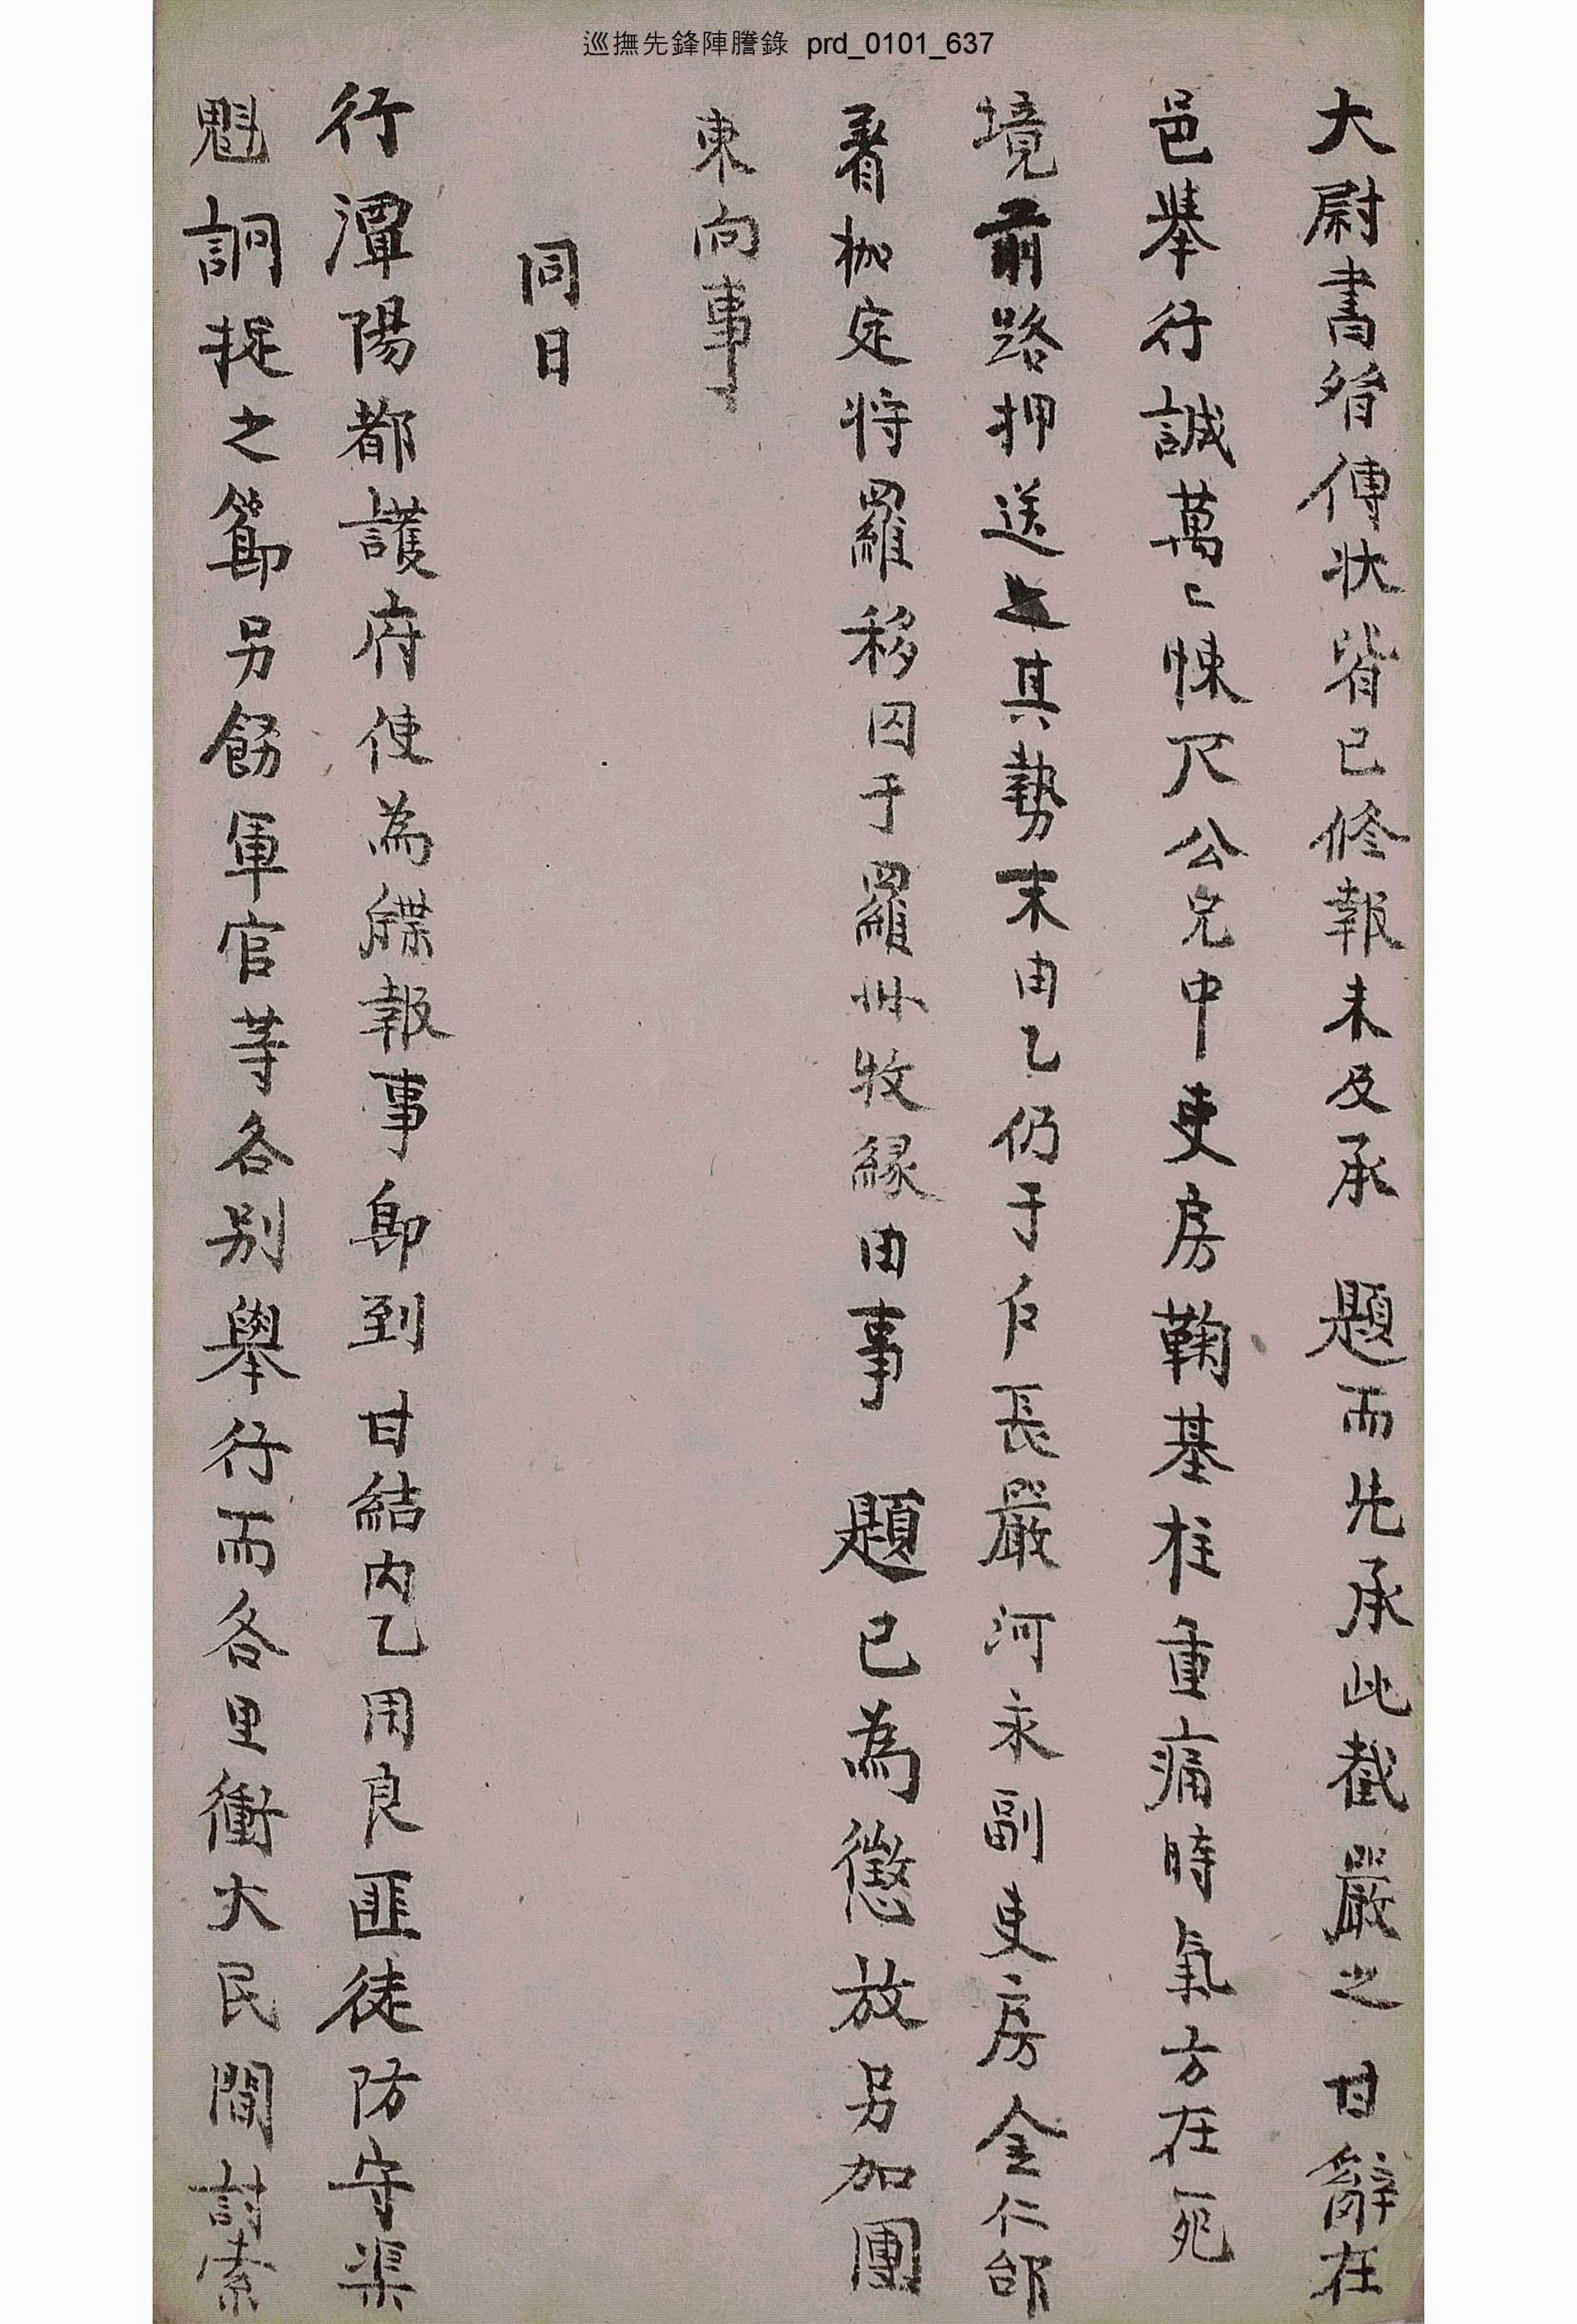 巡撫先鋒陣謄錄 prd_0101_637
大尉書䝱傳状皆已修報未及承 題而先承此截嚴之 甘辭在
邑擧行誠萬〻悚尺公兄中吏房鞠基柱重痛時氣方在死
境前路押送之其勢末由乙仍于戶長嚴河永副吏房全仁邰
着枷定將羅移囚于羅州牧緣由事 題已為懲放另加團
束向事
同日
行潭陽都護府使為牒報事卽到 甘結內乙用良匪徒防守渠
魁詗捉之節另飭軍官等各別擧行而各里衝火民間討索